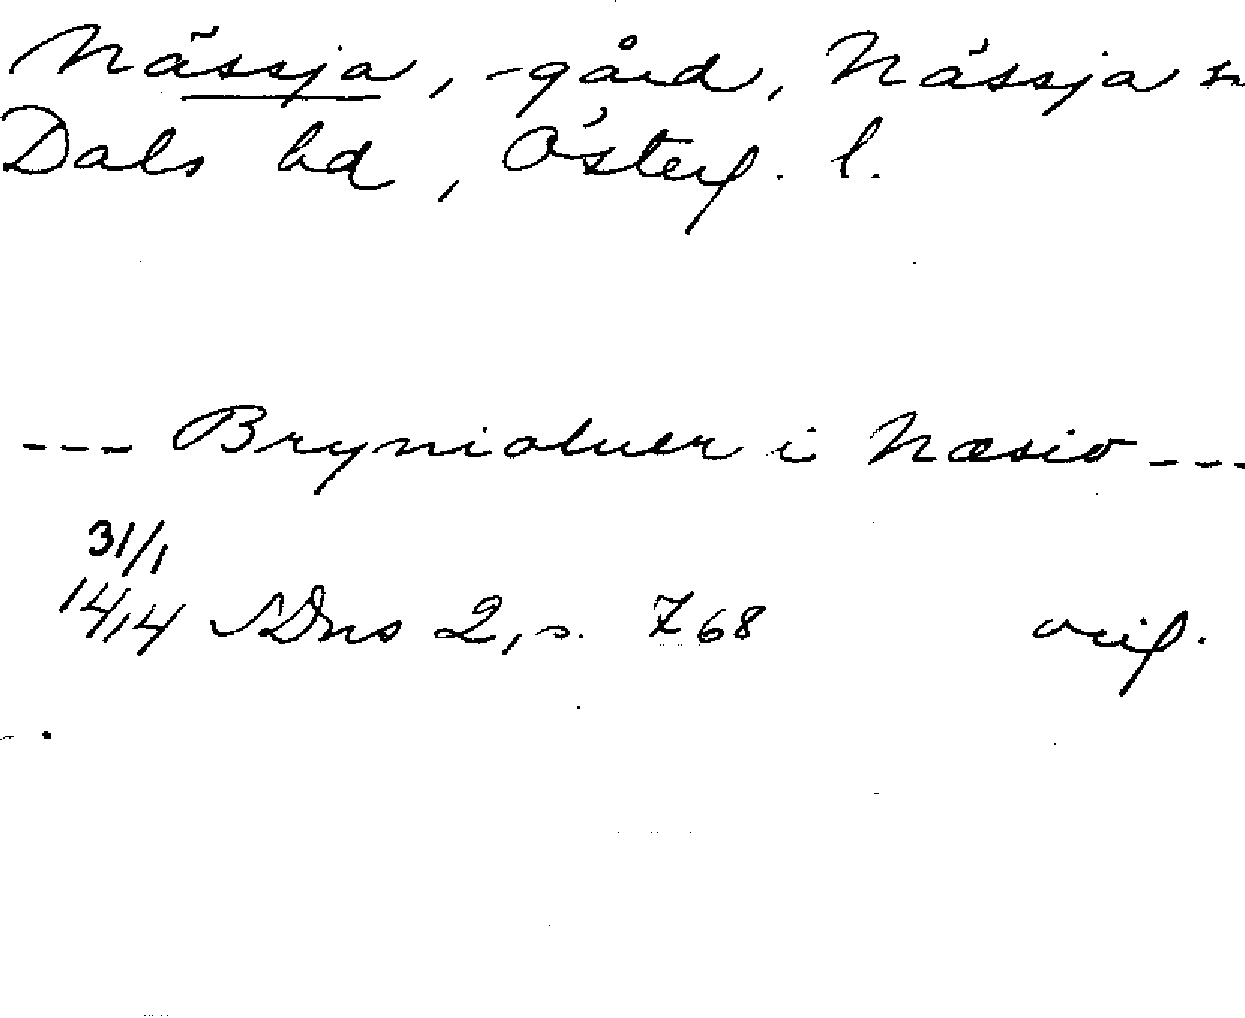 Nässja, -gård, Nässja sn
Dals hd, Österg. l.
--- Brynioluer i Næsio ---
31/1
14/14 SDns 2, s. 768 orig.